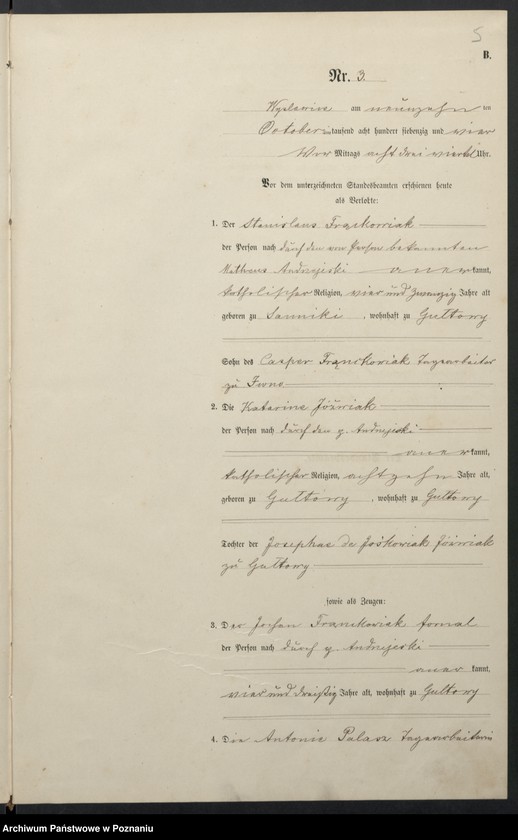 5
B.
Nr. 3.
am neunzehn ten
October tausend acht hundert siebenzig und vier
Vor Mittags acht drei viertel Uhr.
Vor dem unterzeichneten Standesbeamten erschienen heute
als Verlobte:
1. Der Stanislaus Frąckowiak
der Person nach durch den von Person bekannten
Matheus Andrzejeski anerkannt,
katholischer Religion, vier und zwanzig Jahre alt
geboren zu Sanniki, wohnhaft zu Guttowy
Sohn des Casper Franckowiak Tagearbeiter
zu Iwno
2. Die Katarina Jóźwiak
der Person nach durch den g. Andrzejeski
anerkannt,
katholischer Religion, achtzehn Jahre alt,
geboren zu Guttowy, wohnhaft zu Guttowy
Tochter der Josephae de Joskowiak Jóźwiak
zu Guttowy
sowie als Zeugen:
3. Der Johan Franckowiak fornal
der Person nach durch g. Andrzejeski
anerkannt,
vier und dreißig Jahre alt, wohnhaft zu Guttowy
4. Die Antonie Palacz Tagearbeiterin
Archiwum Państwowe w Poznaniu